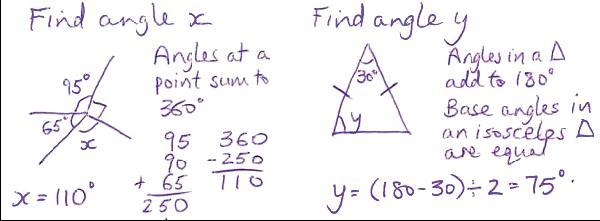 Find angle x
95°
65°
x
Angles at a
point sum to
360°
95
90
+ 65
250
360
- 250
110
x = 110°
Find angle y
30°
y
Angles in a Δ
add to 180°
Base angles in
an isosceles Δ
are equal
y = (180-30) ÷ 2 = 75°.